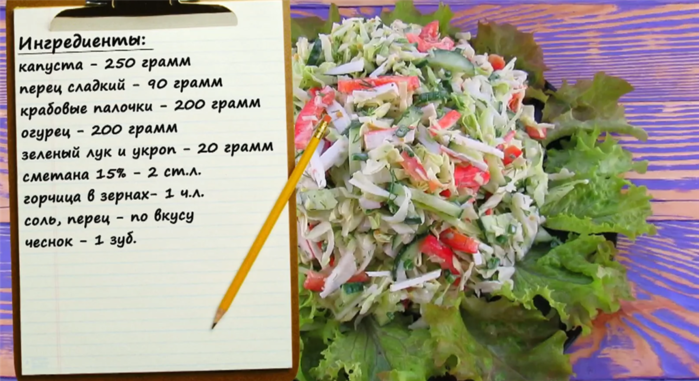 Ингредиенты:
капуста - 250 грамм
перец сладкий - 90 грамм
крабовые палочки - 200 грамм
огурец - 200 грамм
зеленый лук и укроп - 20 грамм
сметана 15% - 2 ст.л.
горчица в зернах- 1 ч.л.
соль, перец - по вкусу
чеснок - 1 зуб.